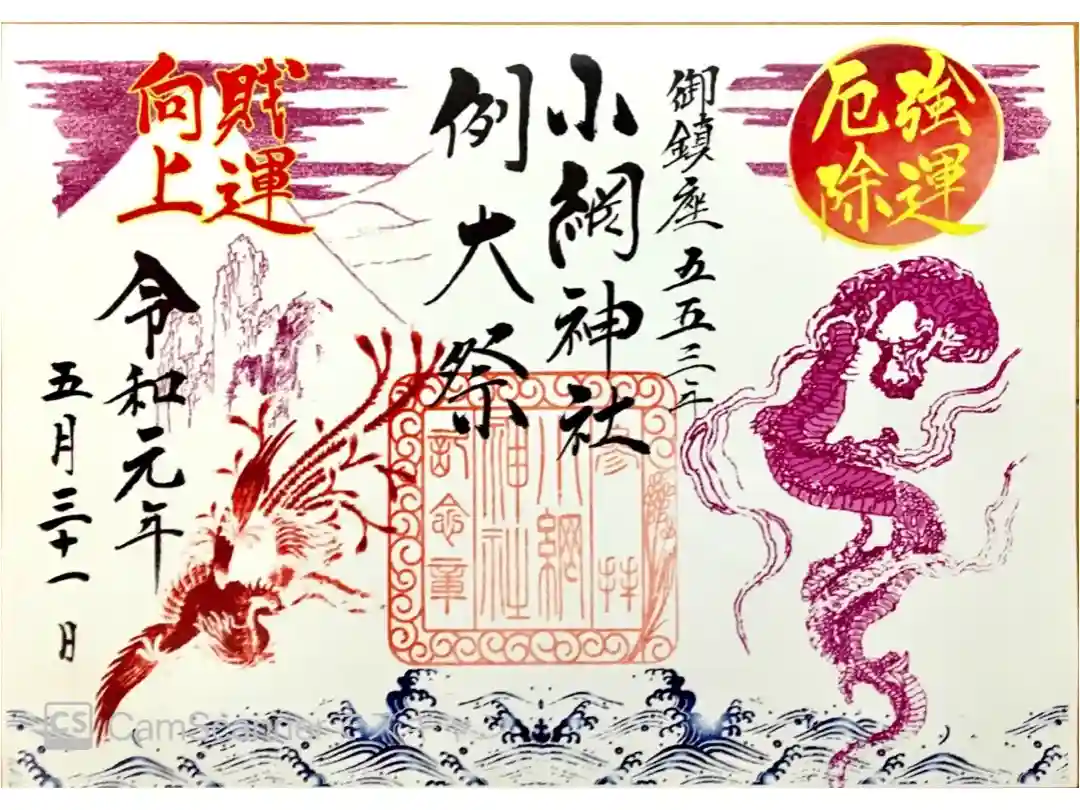 強運
厄除
御鎮座五五三年
小網神社
例大祭
参拝
小網
神社
記念章
財運
向上
令和元年
五月三十一日
CS CamScanner